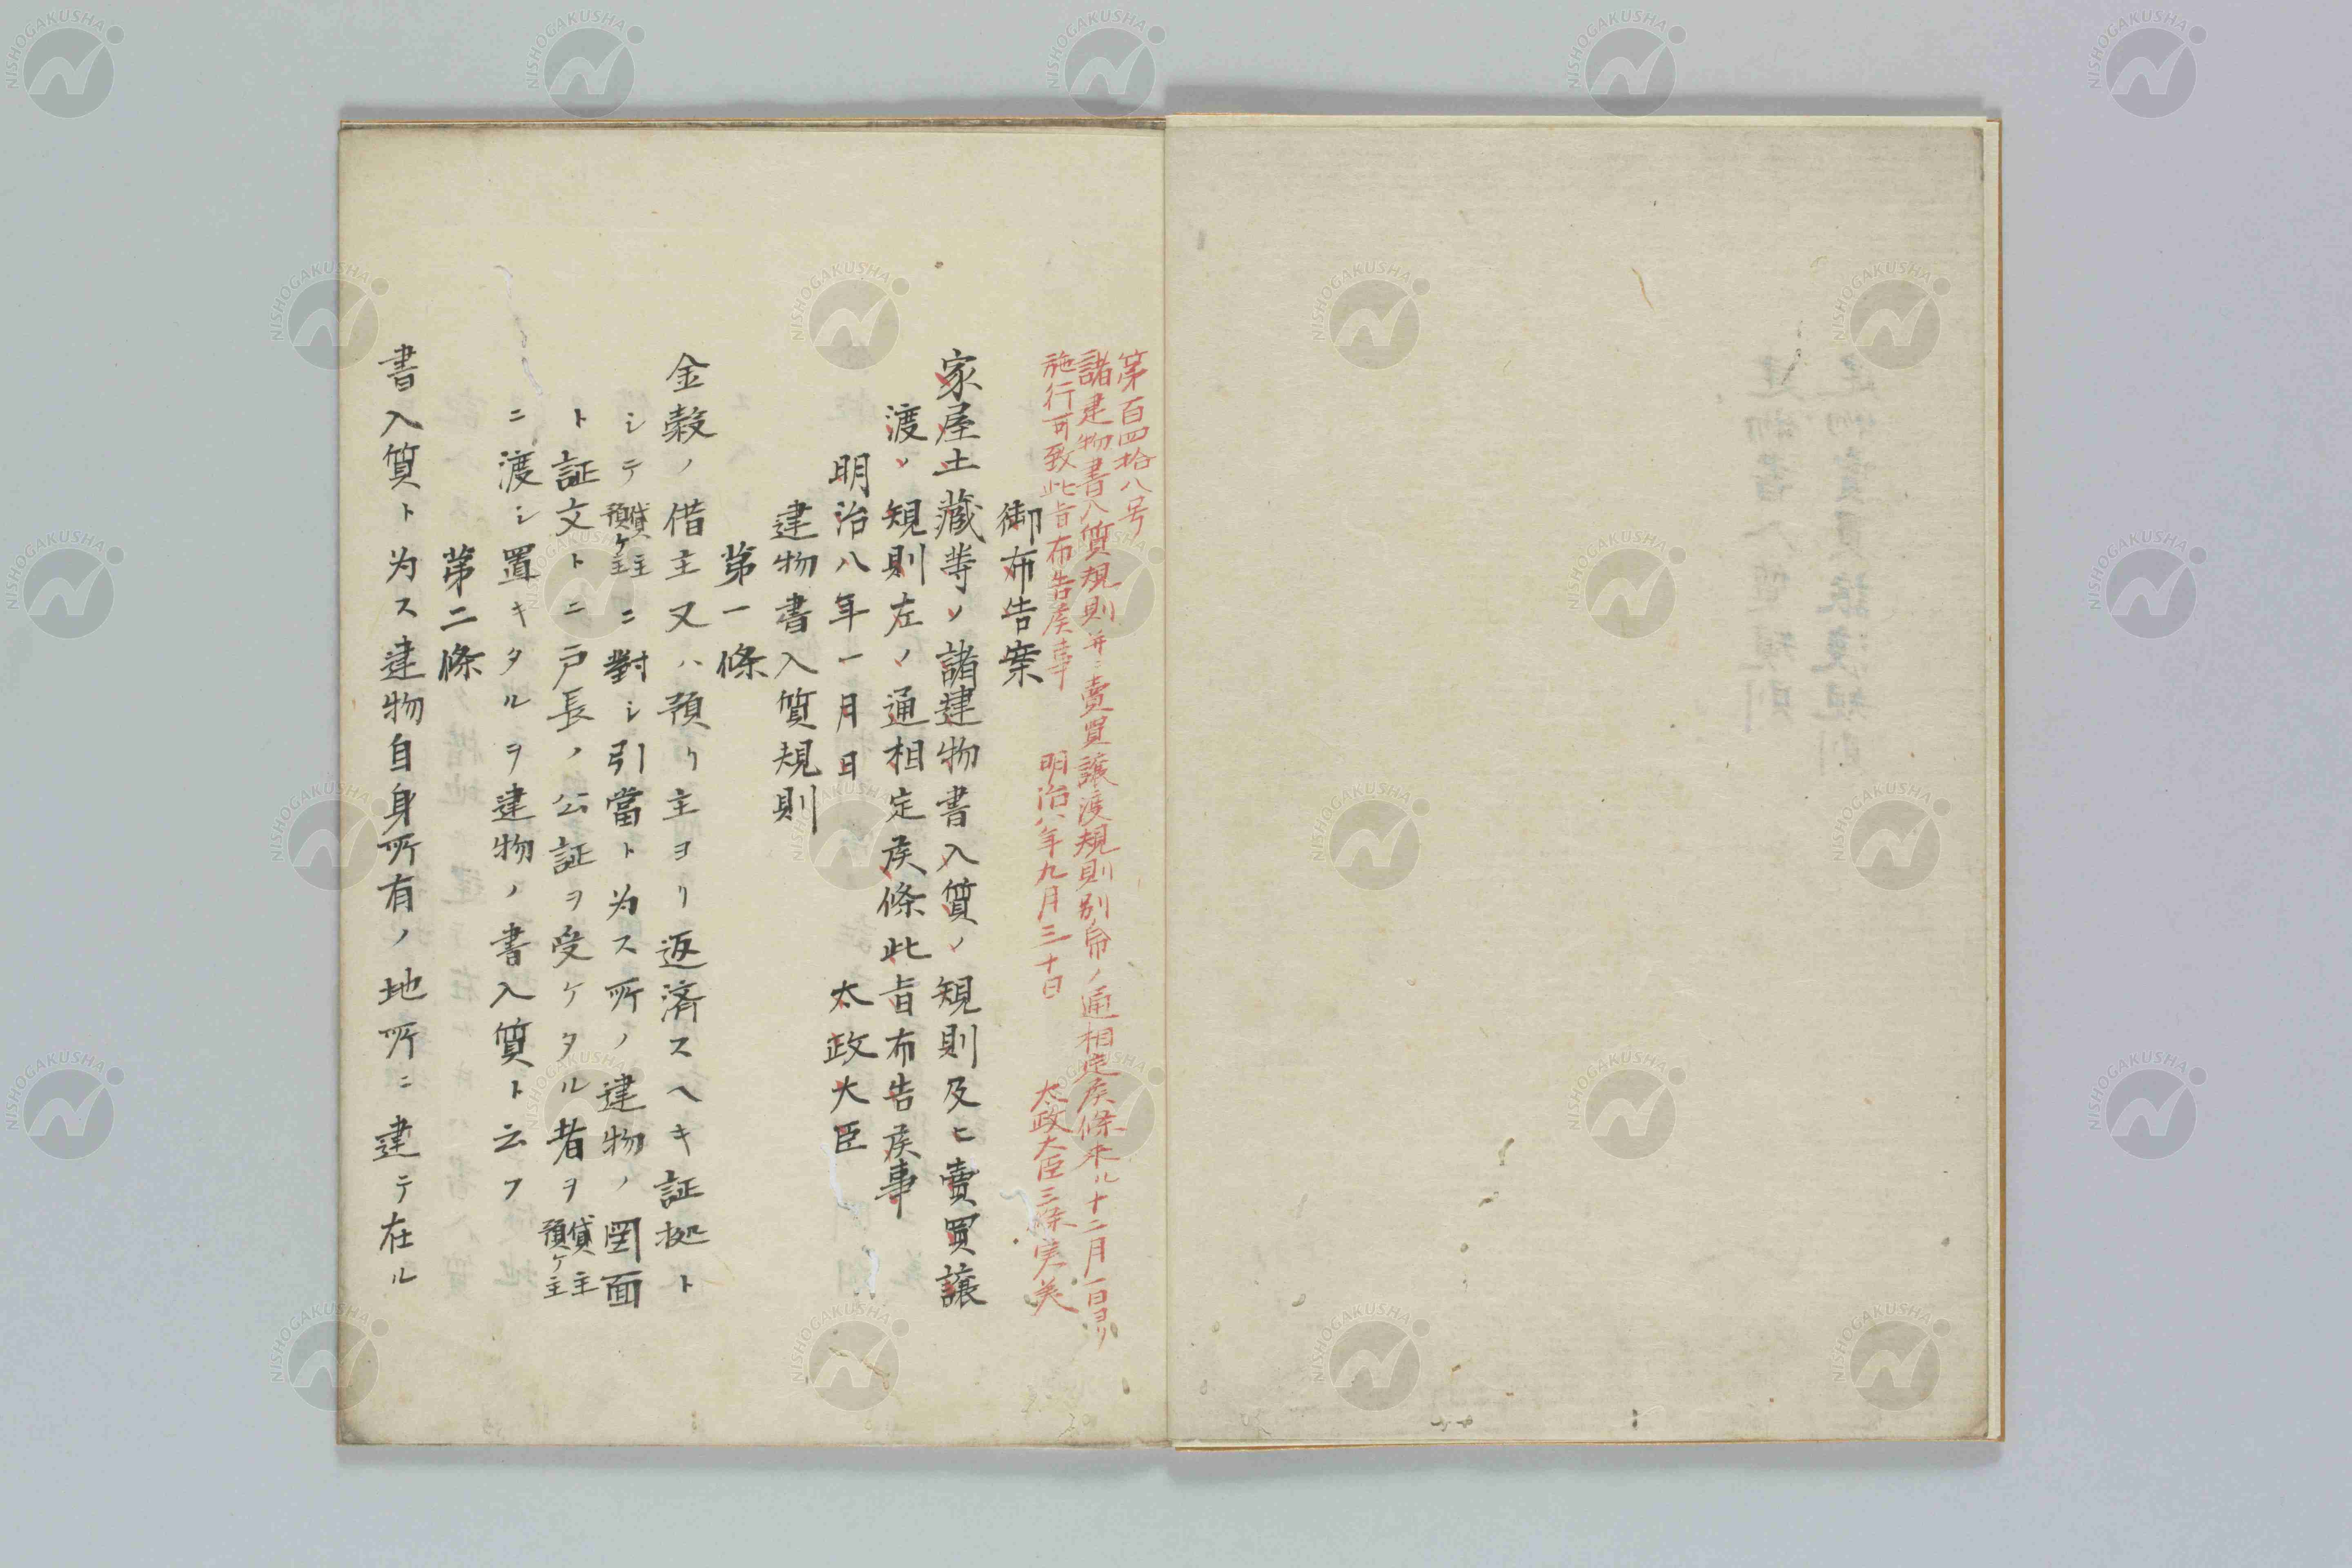 第百四拾八号
諸建物書入質規則并ニ賣買譲渡規則別冊ノ通相定候條来ル十二月一日ヨリ
施行可致此旨布告候事 明治八年九月三十日 太政大臣三條実美
御布告案
家屋土蔵等ノ諸建物書入質ノ規則及ヒ賣買譲
渡ノ規則左ノ通相定候條此旨布告候事
明治八年一月日 太政大臣
建物書入質規則
第一條
金穀ノ借主又ハ預リ主ヨリ返済スヘキ証拠ト
シテ貸主預ケ主ニ對シ引當ト为ス所ノ建物ノ圖面
ト証文トニ戸長ノ公証ヲ受ケタル者ヲ貸主預ケ主
ニ渡シ置キタルヲ建物ノ書入質ト云フ
第二條
書入質ト为ス建物自身所有ノ地所ニ建テ在ル
NISHOGAKUSHA